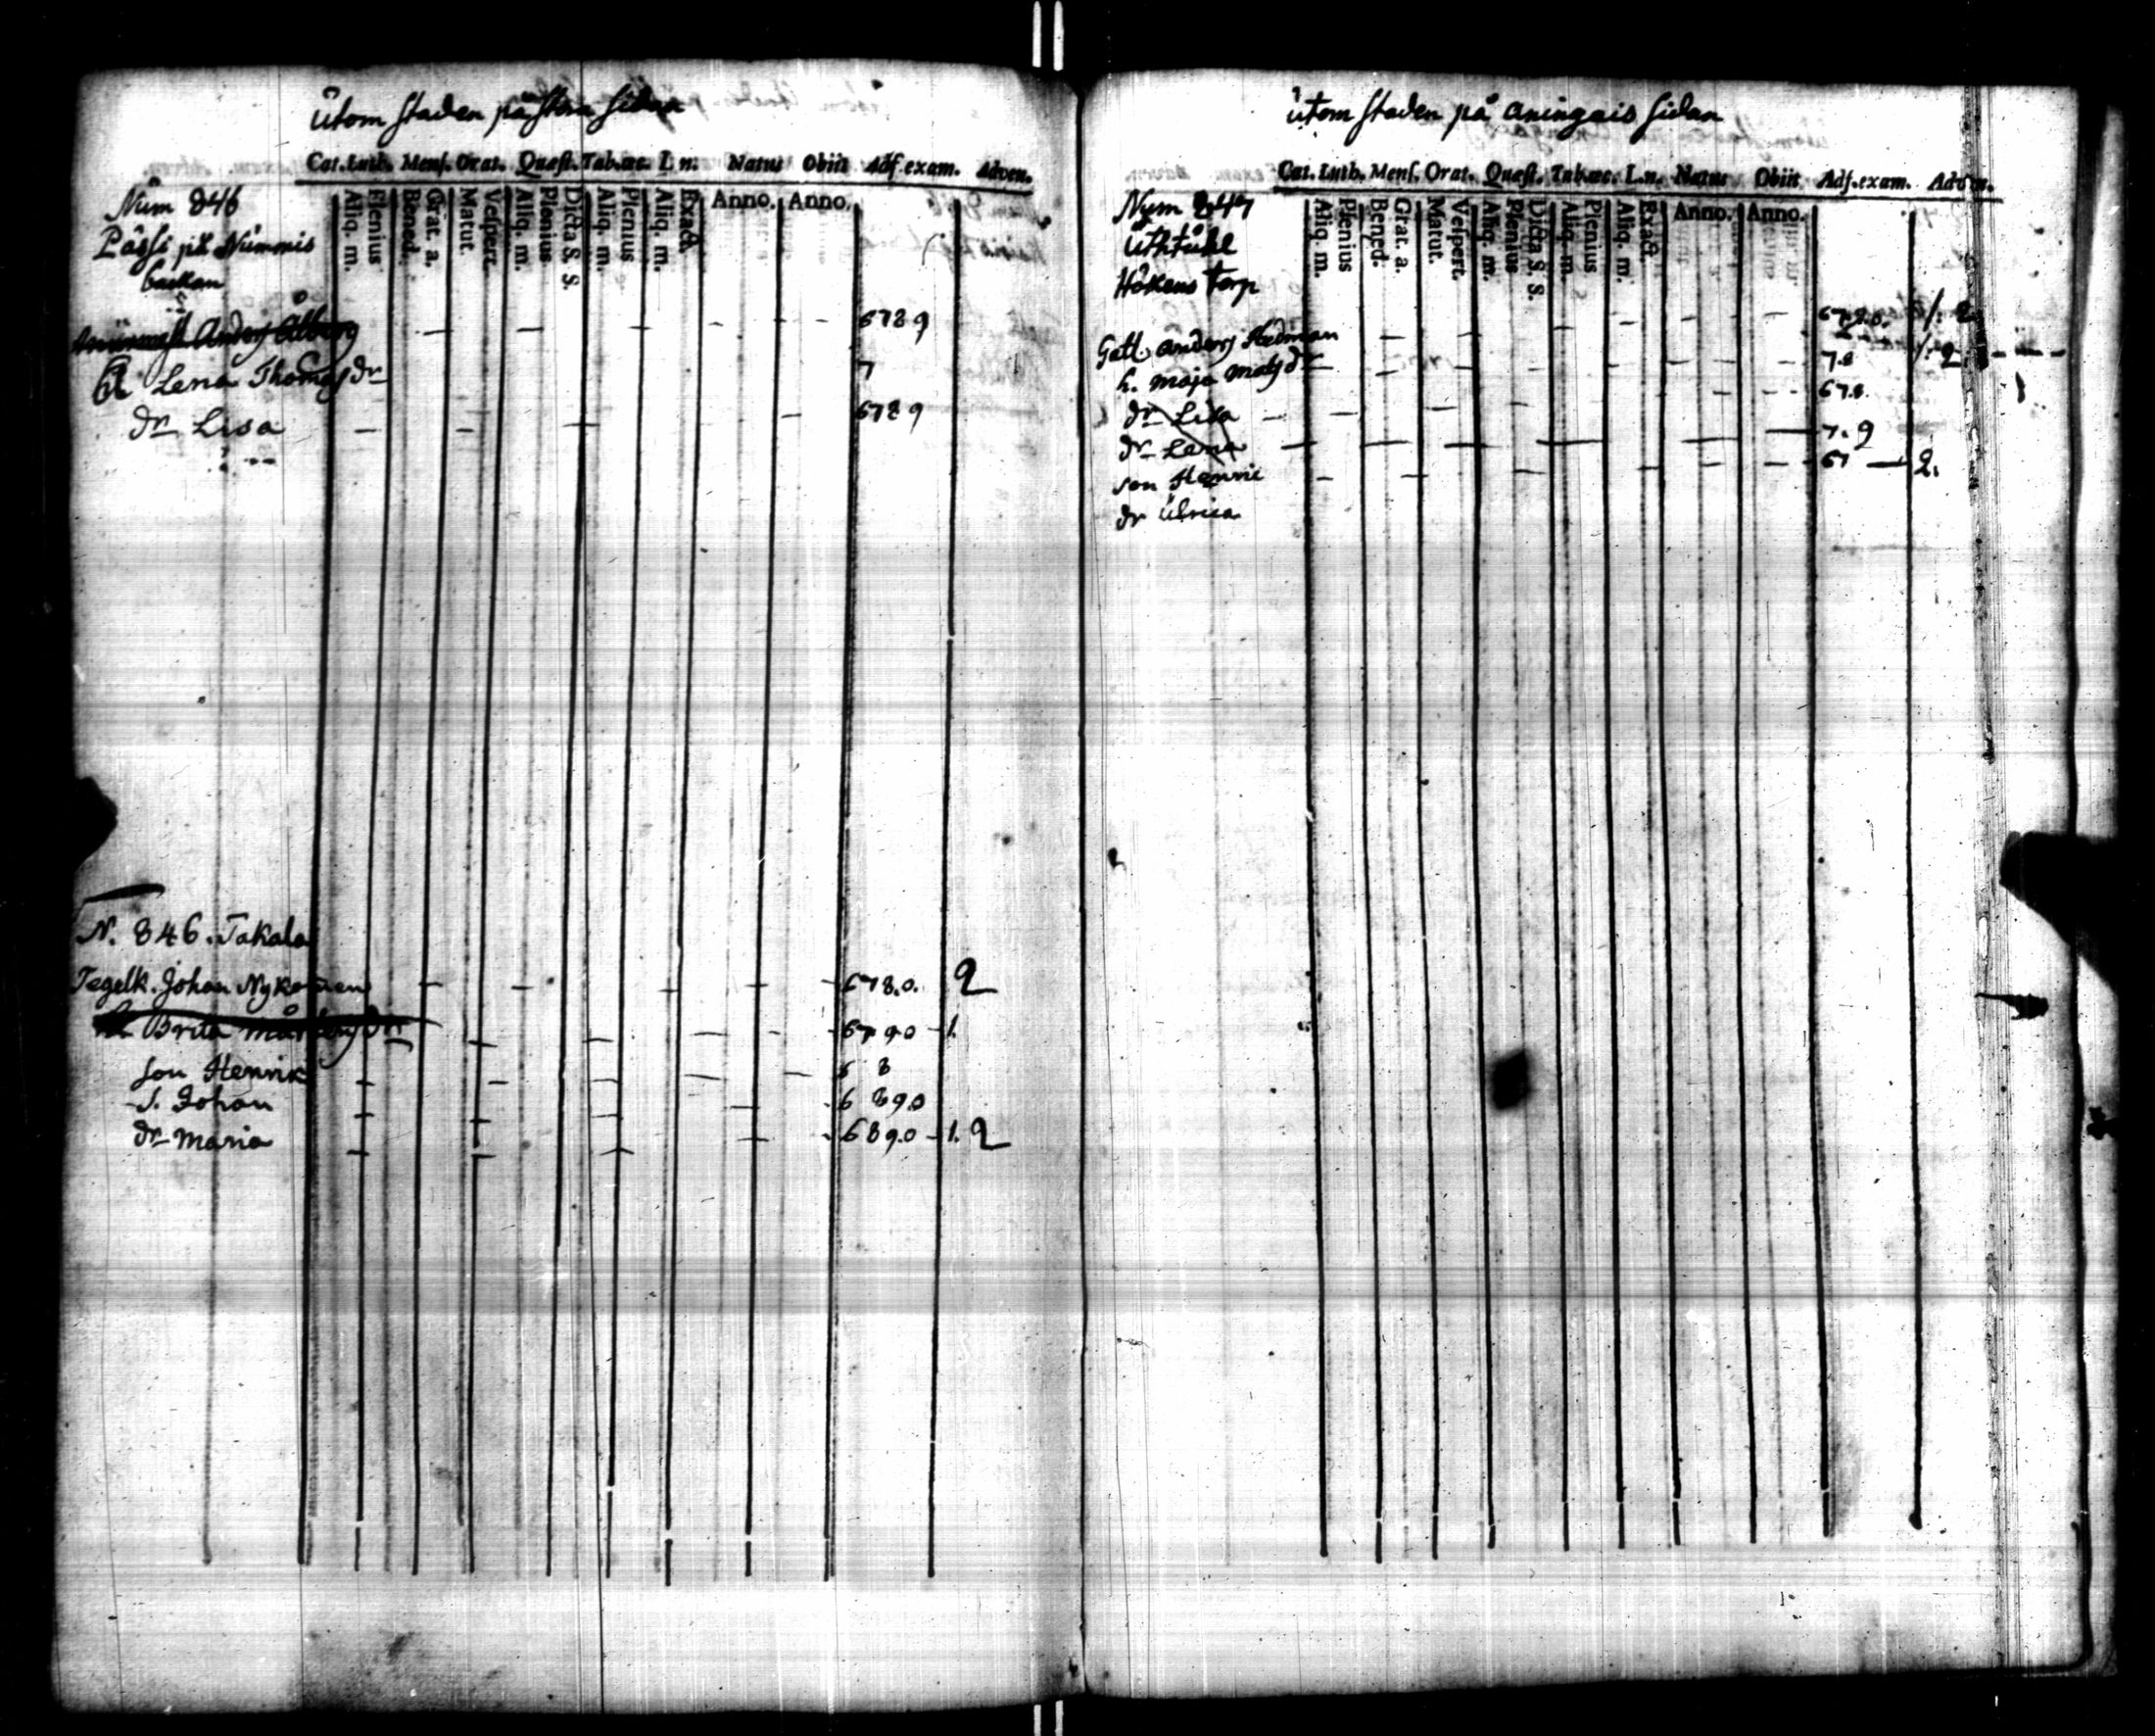 Utom staden på stora sidan
Cat. Luth. Mens. Orat. Quæst. Tab. œc. L. n. Natus Obiit Adf. exam. Adven.
Aliq. m. Plenius Bened. Grat. a. Matut. Vespert. Aliq. m. Plenius Dicta S. S. Aliq. m. Plenius Aliq. m. Exact. Anno. Anno.
Num 846
Pässi på Nummis
backan
Anders Alberg 6789
h Lena Thomasdr 7
dr Lisa 6789
N. 846. Takala
Tegelk. Johan Nykopen 678.0. 2
h Brita Mårtensdr 6790 1.
son Henrik 6 8
S. Johan 6 890
dr Maria 689.0 1. 2
utom staden på aningais sidan
Cat. Luth. Mens. Orat. Quæst. Tab. œc. L. n. Natus Obiit Adf. exam. Adven.
Aliq. m. Plenius Bened. Grat. a. Matut. Vespert. Aliq. m. Plenius Dicta S. S. Aliq. m. Plenius Aliq. m. Exact. Anno. Anno.
Num 847
Håkans torp
Gall. Anders Hedman
h. Maja Matsdr 7.8 2
dr Lisa 678.
dr Lena 7.9
son Henric 67 2.
dr Ulrica